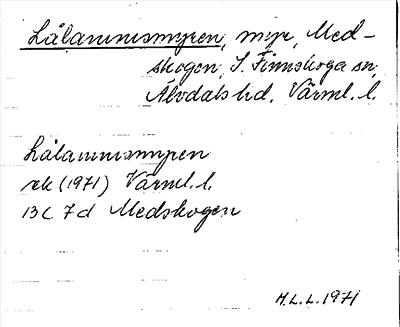 Lålammsmyren, myr, Med-
skogen, S. Finnskoga sn,
Älvdals hd, Värml. l.
Lålammsmyren
rek (1971) Värml. l.
13C 7d Medskogen
H.L.L. 1971